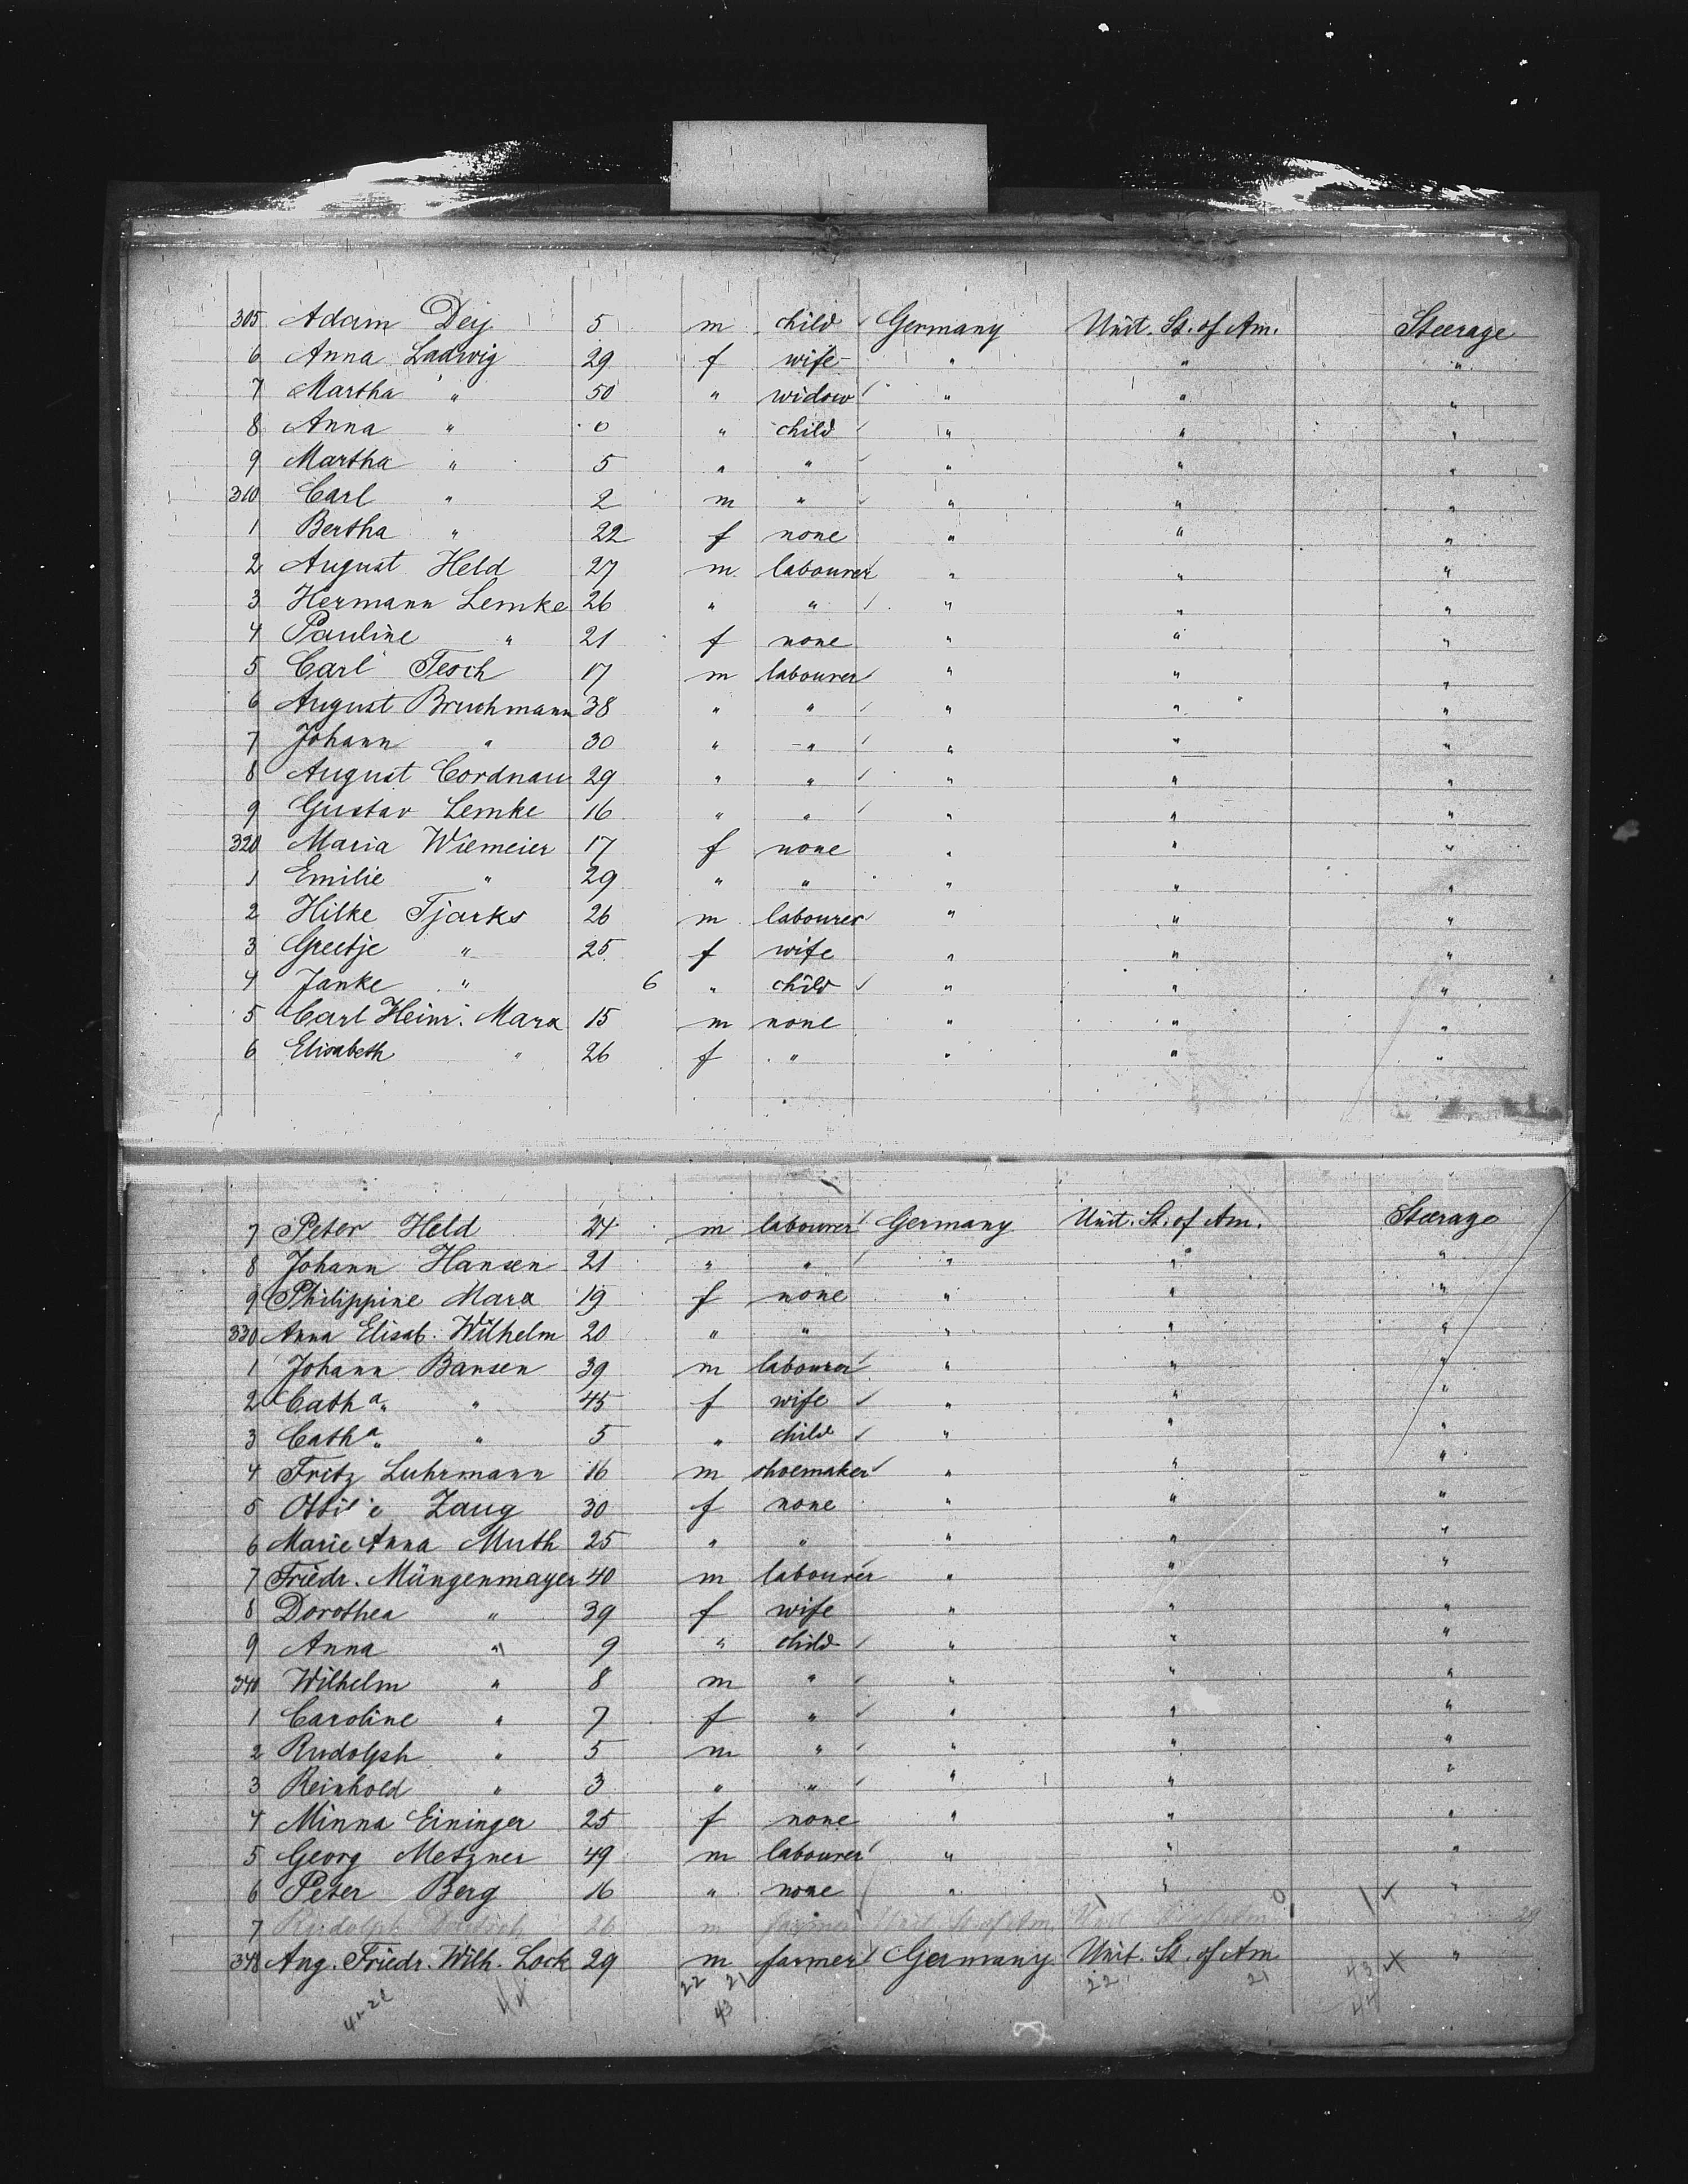 305 Adam Dey 5 m child Germany Unit. St. of Am. Steerage
6 Anna Ladwig 29 f wife " " "
7 Martha " 50 " widow " " "
8 Anna " 0 " child " " "
9 Martha " 5 " " " " "
310 Carl " 2 m " " " "
1 Bertha " 22 f none " " "
2 August Held 27 m labourer " " "
3 Hermann Lemke 26 " " " " "
4 Pauline " 21 f none " " "
5 Carl Tesch 17 m labourer " " "
6 August Bruchmann 38 " " " " "
7 Johann " 30 " " " " "
8 August Cordnau 29 " " " " "
9 Gustav Lemke 16 " " " " "
320 Maria Wiemeier 17 f none " " "
1 Emilie " 29 " " " " "
2 Hilke Tjarks 26 m labourer " " "
3 Greetje " 25 f wife " " "
4 Janke " 6 " child " " "
5 Carl Heinr. Marx 15 m none " " "
6 Elisabeth " 26 f " " " "
7 Peter Held 24 m labourer Germany Unit. St. of Am. Steerage
8 Johann Hansen 21 " " " " "
9 Philippine Marx 19 f none " " "
330 Anna Elisab. Wilhelm 20 " " " " "
1 Johann Bansen 39 m labourer " " "
2 Catha " 45 f wife " " "
3 Catha " 5 " child " " "
4 Fritz Luhrmann 16 m shoemaker " " "
5 Ottilie Zaug 30 f none " " "
6 Marie Anna Muth 25 " " " " "
7 Friedr. Müngenmayer 40 m labourer " " "
8 Dorothea " 39 f wife " " "
9 Anna " 9 " child " " "
340 Wilhelm " 8 m " " " "
1 Caroline " 7 f " " " "
2 Rudolph " 5 m " " " "
3 Reinhold " 3 " " " " "
4 Minna Eininger 25 f none " " "
5 Georg Metzner 49 m labourer " " "
6 Peter Berg 16 " none " " "
7 Rudolph 26 m farmer Unit. St. of Am. Unit. St. of Am. 29
348 Aug. Friedr. Wilh. Lock 29 m farmer Germany Unit. St. of Am. "
44 22 21 22 21 43
43 44